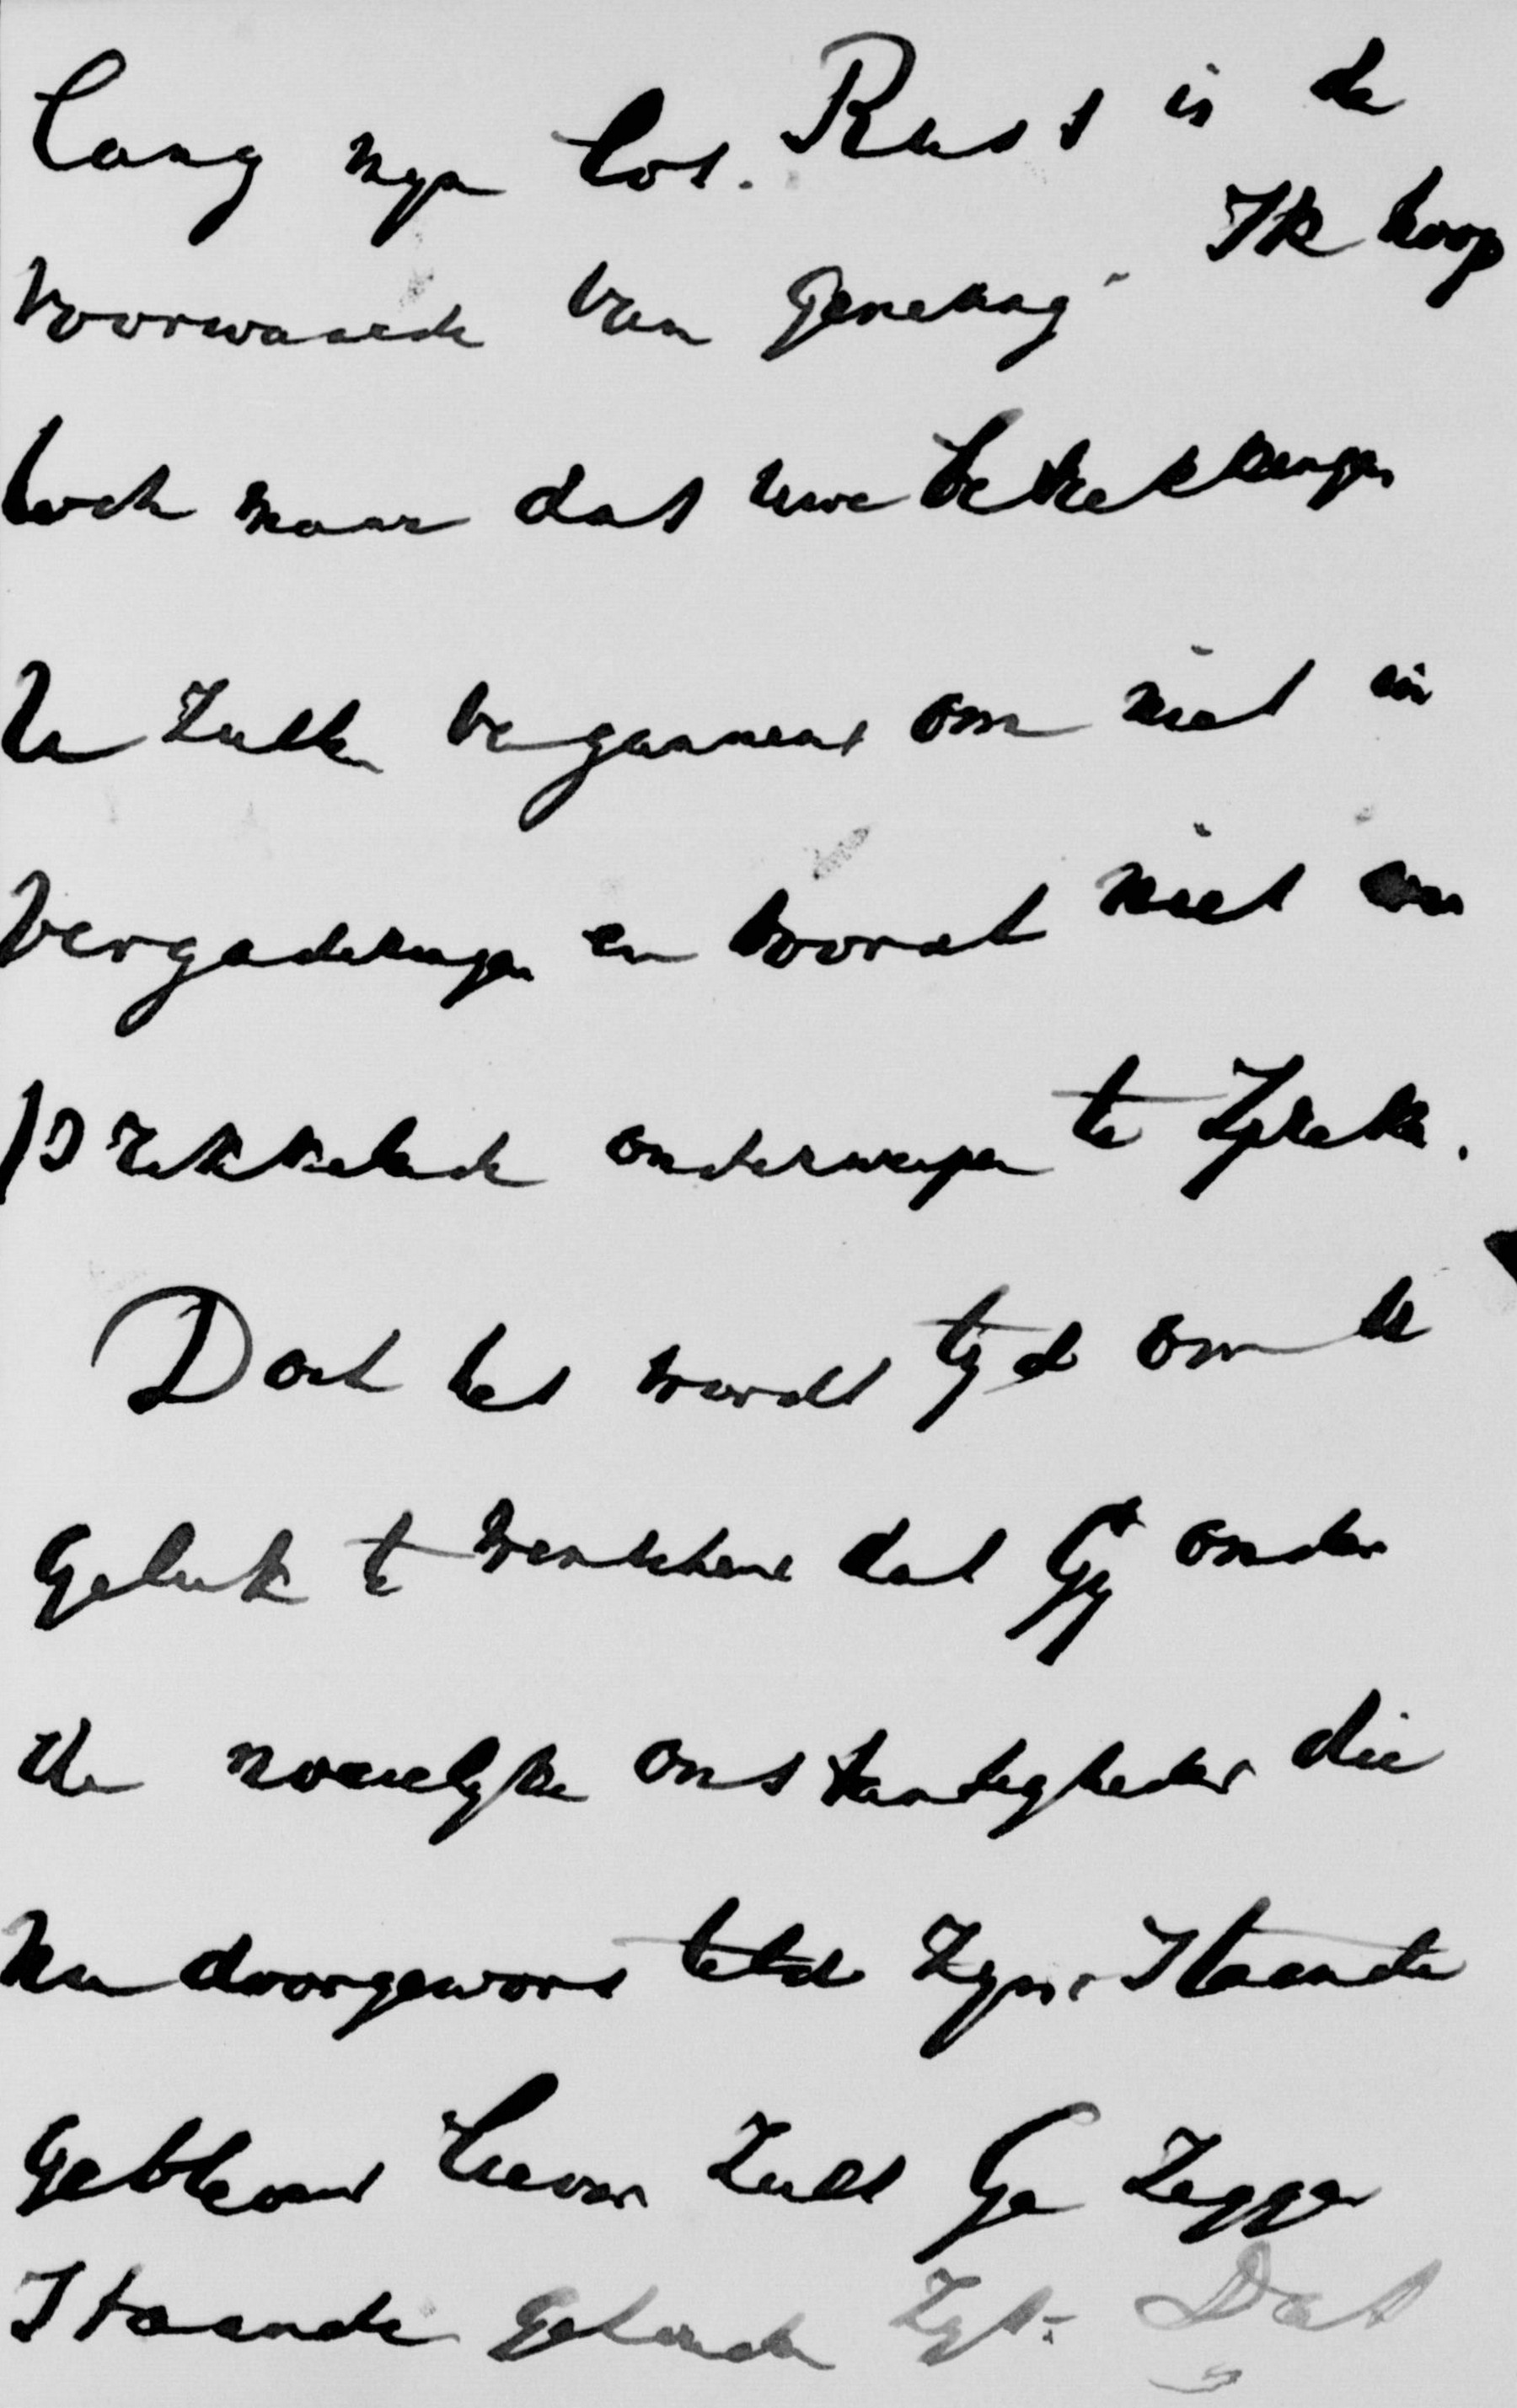 lang mijn los. Rust is de
voorwaarde van genezing. Ik hoop
toch maar dat uwe betrekkingen
U zullen vergunnen om niet in
vergaderingen en vooral niet over
prikkelende onderwerpen te spreken.
Doch het wordt tijd om U
geluk te wenschen dat Gij onder
de moeielijke omstandigheden die
nu doorgeworsteld zijn, staande
gebleven liever zult Ge zeggen
staande gehouden zijt. Dat